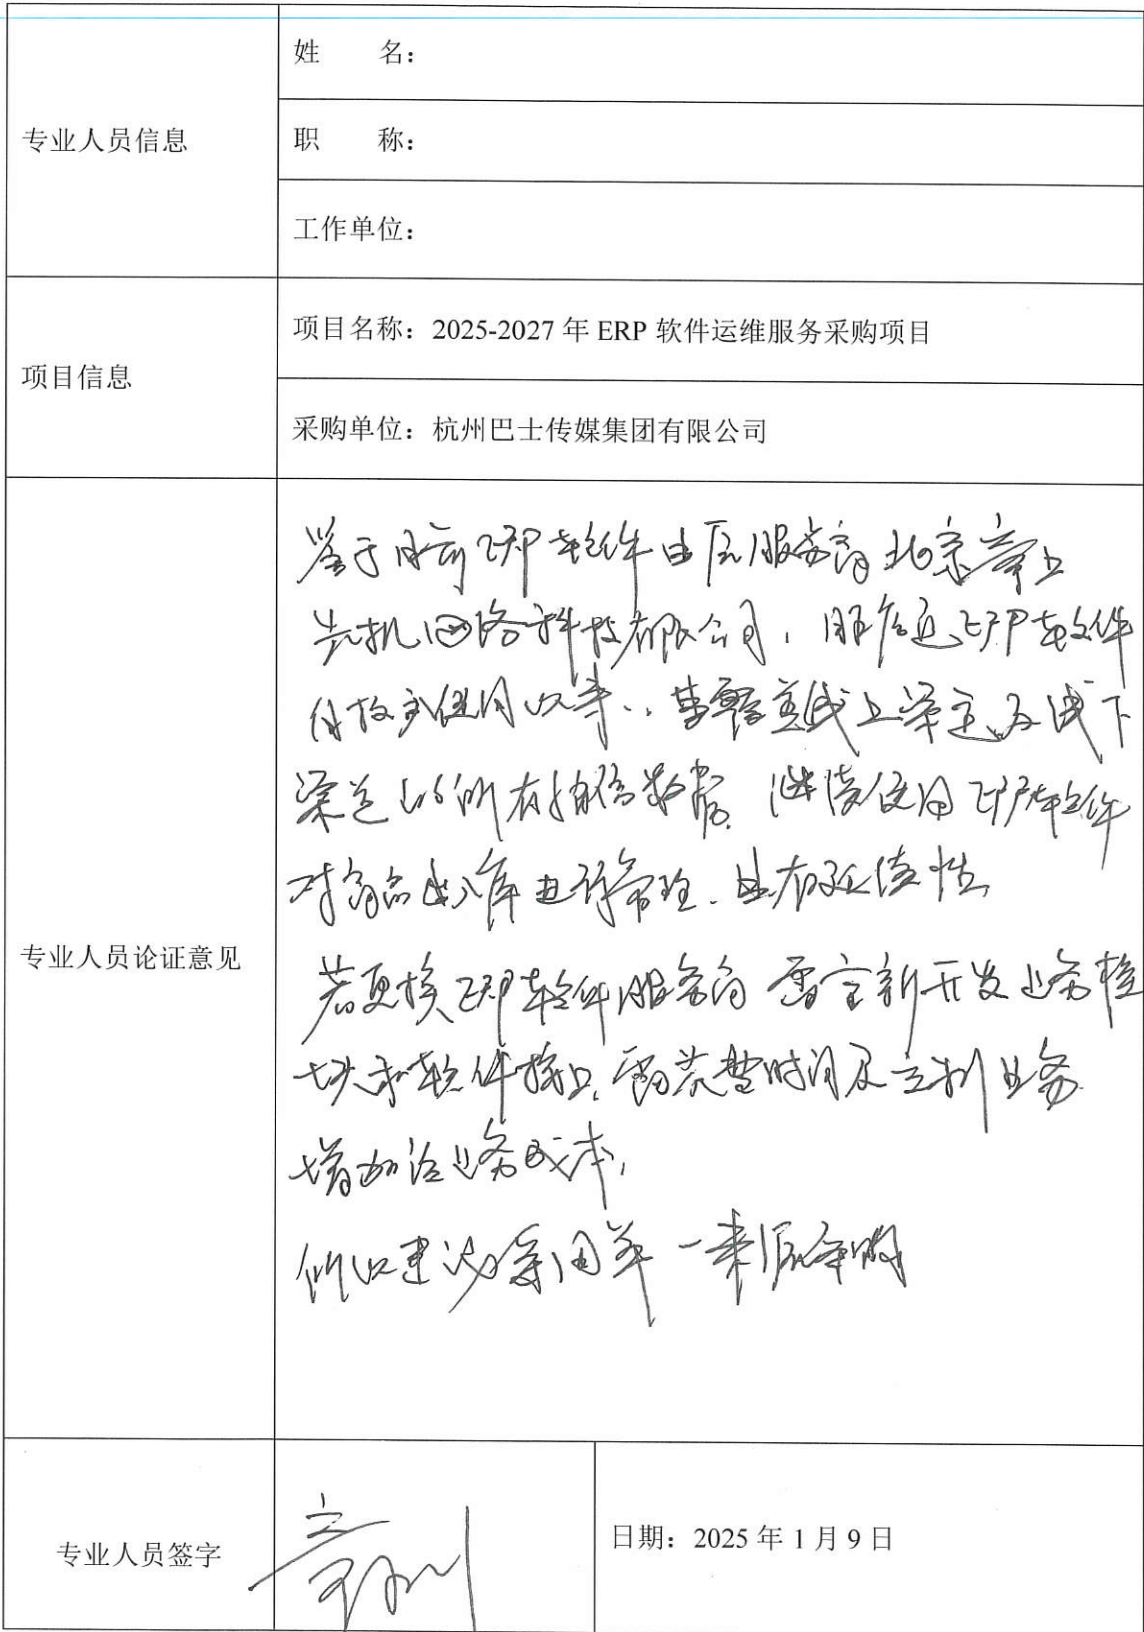 姓 名：
职 称：
专业人员信息
工作单位：
项目名称：2025-2027 年 ERP 软件运维服务采购项目
项目信息
采购单位：杭州巴士传媒集团有限公司
鉴于目前ERP软件由原服务商北京掌上
先机网络科技有限公司，ERP软件
使用以来，覆盖线上渠道及线下
渠道的所有销售数据，继续使用ERP软件
对商品出入库进行管理，具有延续性
专业人员论证意见
若更换ERP软件服务商 需重新开发业务模
块和软件接口，需花费时间及定制业务
增加该业务成本，
所以建议采用单一来源采购
专业人员签字
日期：2025 年 1 月 9 日